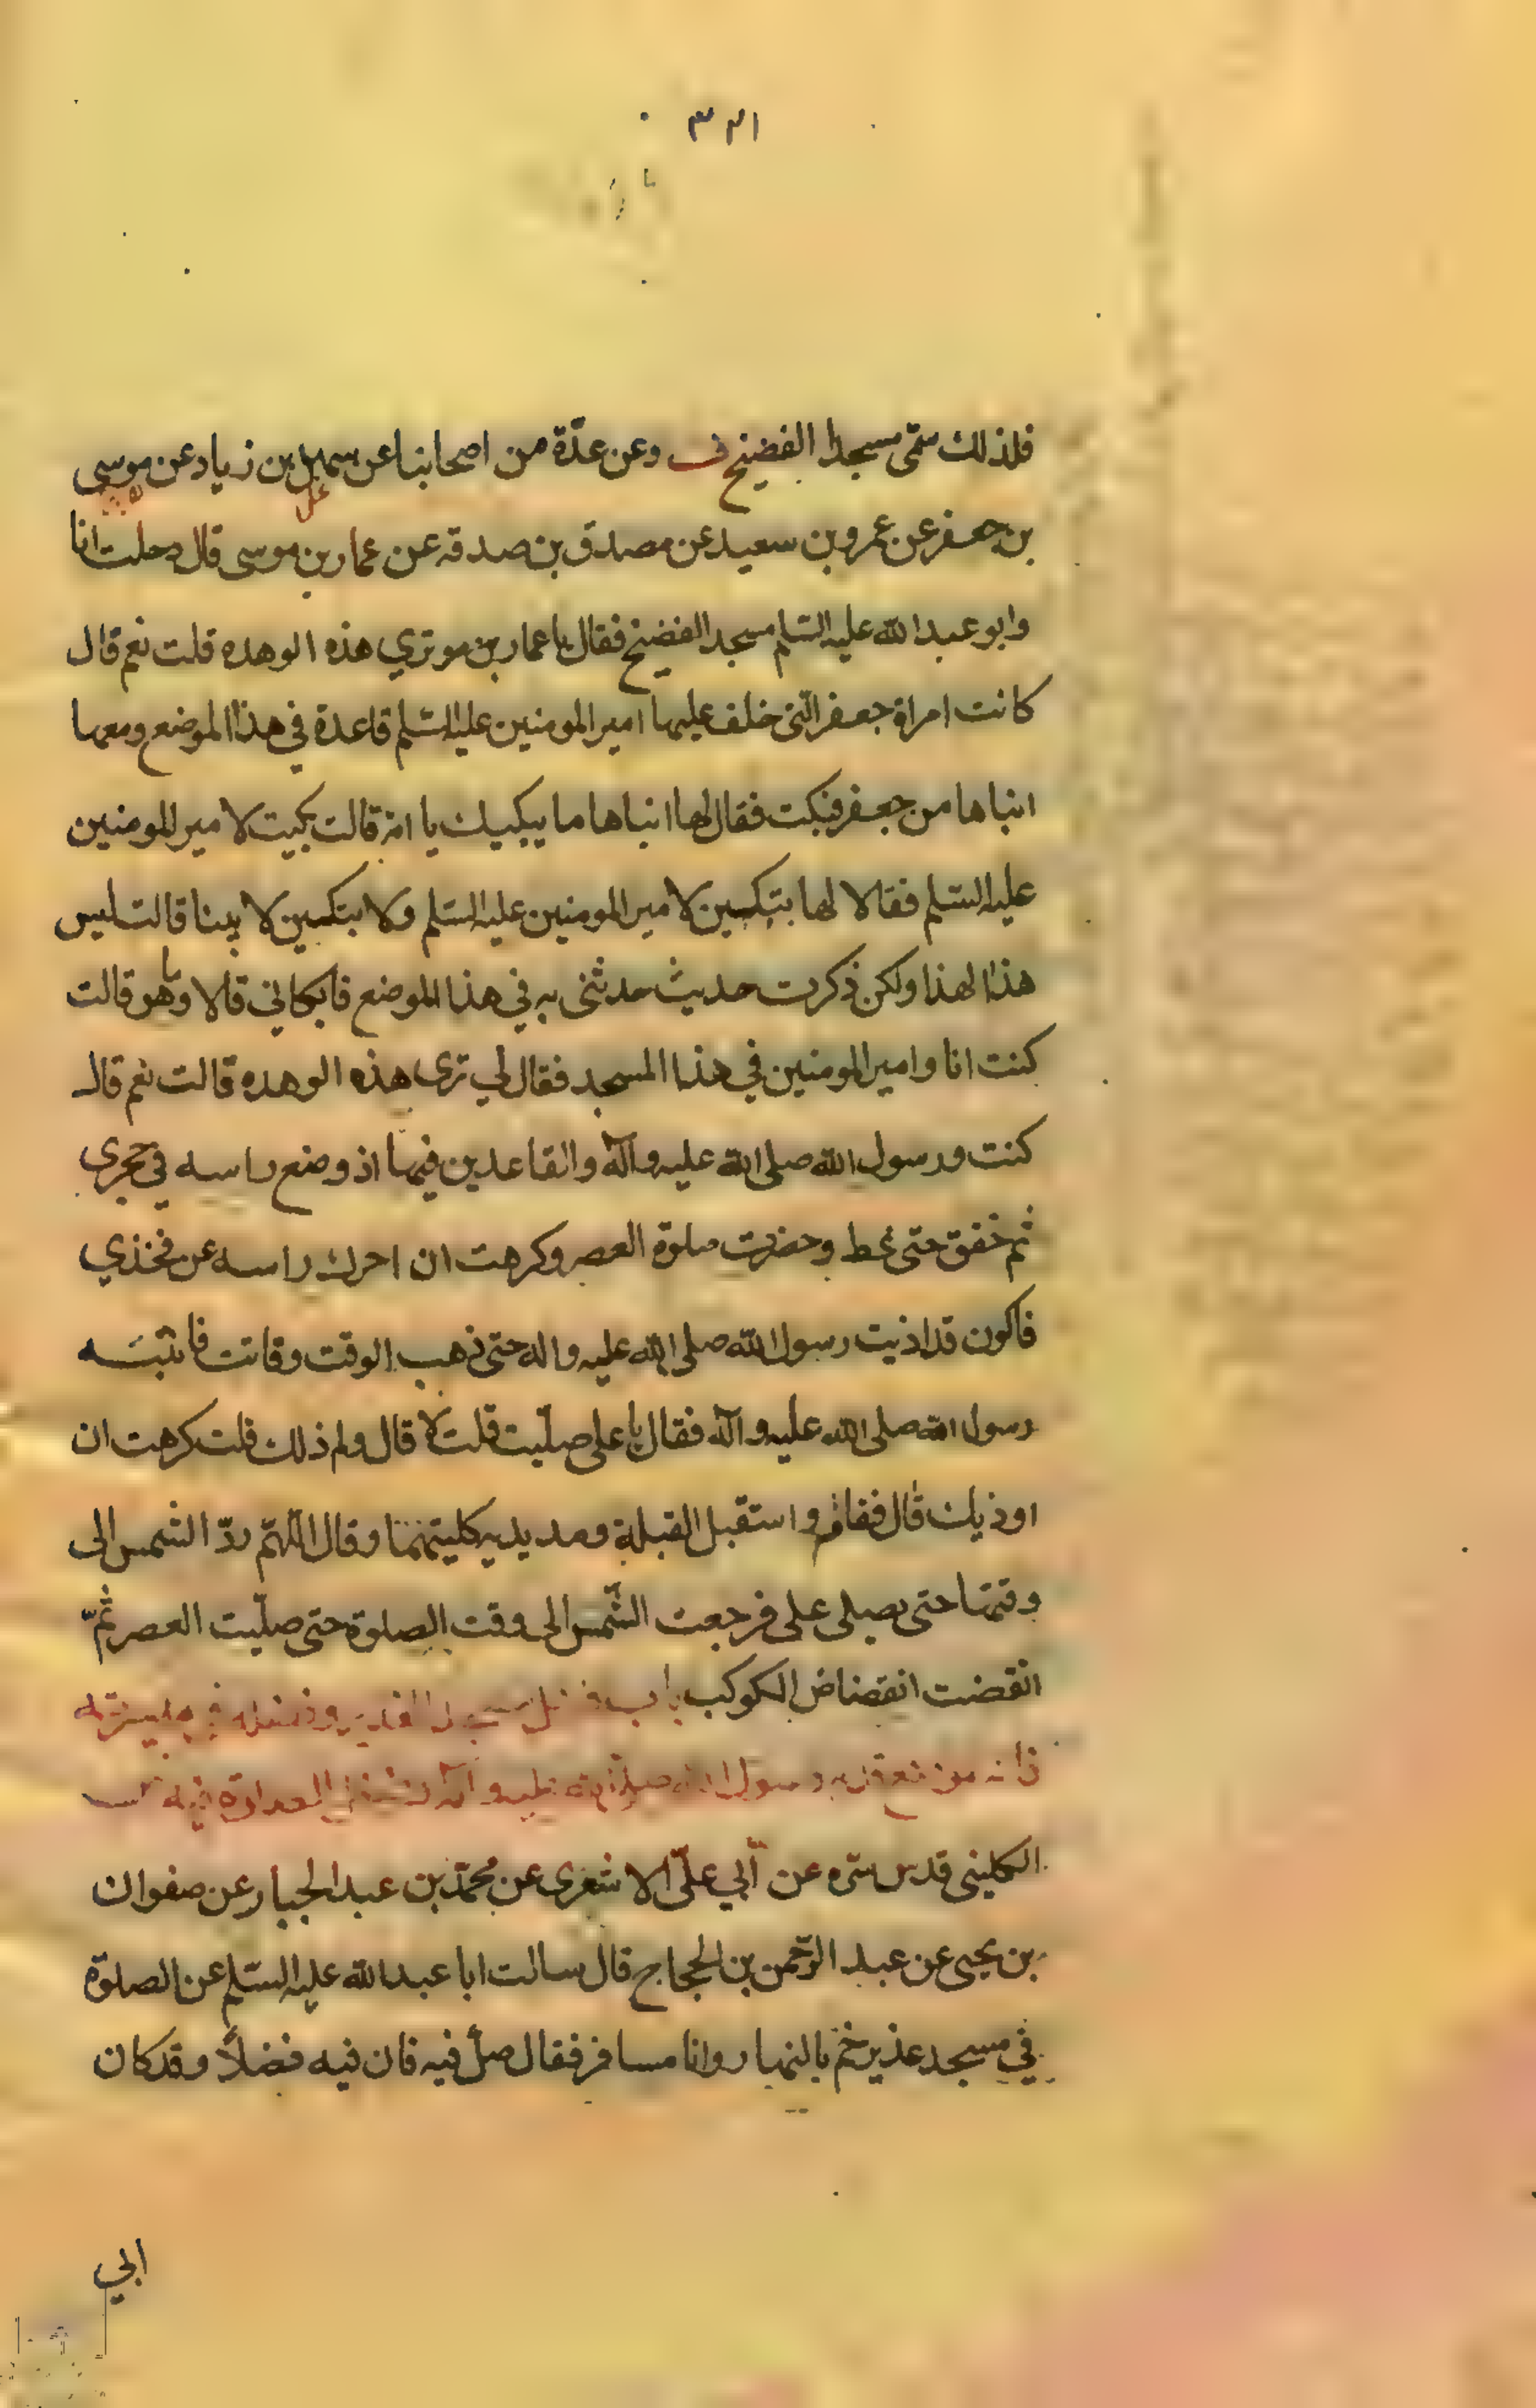 ٣٢١
فلذلك سمّى مسجدا الفضيخ ف وعن عدّة من اصحابنا عن سهل بن زياد عن موسى
بن جعفر عن عمرو بن سعيد عن مصدق بن صدقه عن عمار بن موسى قال دخلت انا
وابو عبد الله عليه السّلم مسجد الفضيخ فقال يا عمار بن مو تري هذه الوهده قلت نعم قال
كانت امراة جعفر الّتى خلف عليها امير المومنين عليه السّلم قاعدة في هذا الموضع ومعها
ابناها من جعفر فبكت فقال لها ابناها ما يبكيك يا امه قالت بكيت لامير المومنين
عليه السّلم فقالا لها بتبكين لامير المومنين عليه السّلم ولا بتبكين لابينا قالت ليس
هذا لهذا ولكن ذكرت حديث حدثنى به في هذا الموضع فابكاني قالا وما هو قالت
كنت انا وامير المومنين في هذا المسجد فقال لي ترى هذه الوهده قالت نعم قال
كنت ورسول الله صلى الله عليه وآله والقاعدين فيها اذ وضع راسه في حجري
ثم خفق حتى غط وحضرت صلوة العصر وكرهت ان احرك راسه عن فخذي
فاكون قد اذيت رسول الله صلى الله عليه واله حتى ذهب الوقت وفاتت فانتبه
رسول الله صلى الله عليه وآله فقال يا على صلّيت قلت لا قال ولم ذلك قلت كرهت ان
اوذيك قال فقام واستقبل القبلة ومد يديه كليتهما وقال اللهّم ردّ الشمس الى
وقتها حتى يصلى على فرجعت الشّمس الى وقت الصلوة حتى صلّيت العصر ثمّ
انقضت انقضاض الكوكب باب
رسول الله صلى الله عليه وآله
الكلينى قدس سّره عن أبي علىّ الاشعرى عن محمّد بن عبد الجبار عن صفوان
بن يحيى عن عبد الرّحمن بن الحجاج قال سالت ابا عبد الله عليه السّلم عن الصلوة
في مسجد غدير خم بالنهار وانا مسافر فقال صلّ فيه فان فيه فضلاً وقد كان
ابي